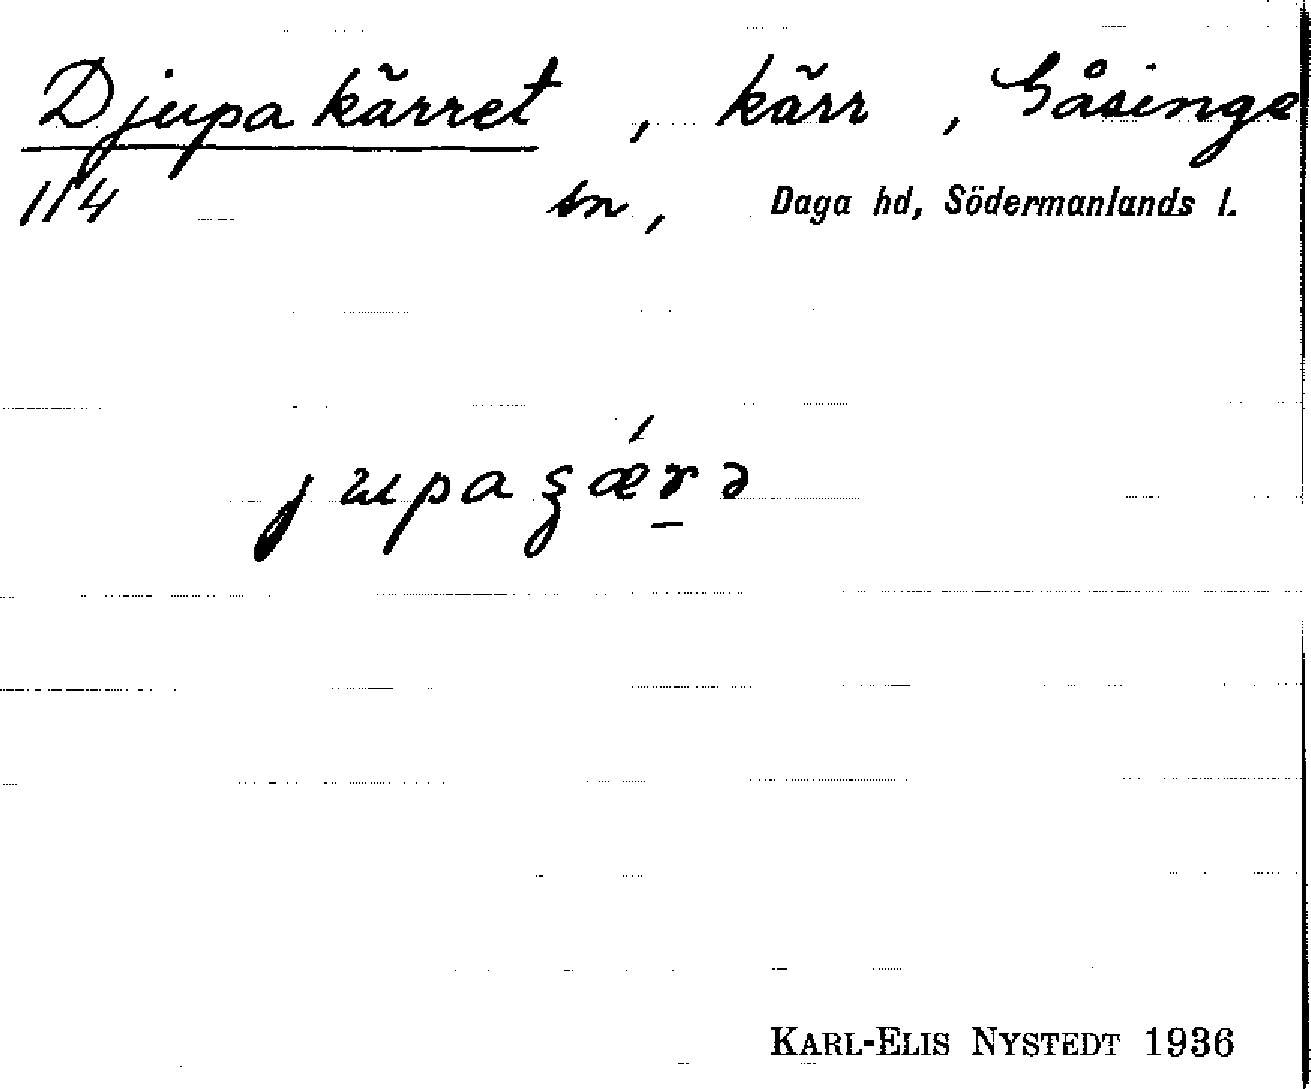 Djupa kärret, kärr, Gåsinge
114 sn, Daga hd, Södermanlands l.
KARL-ELIS NYSTEDT 1936